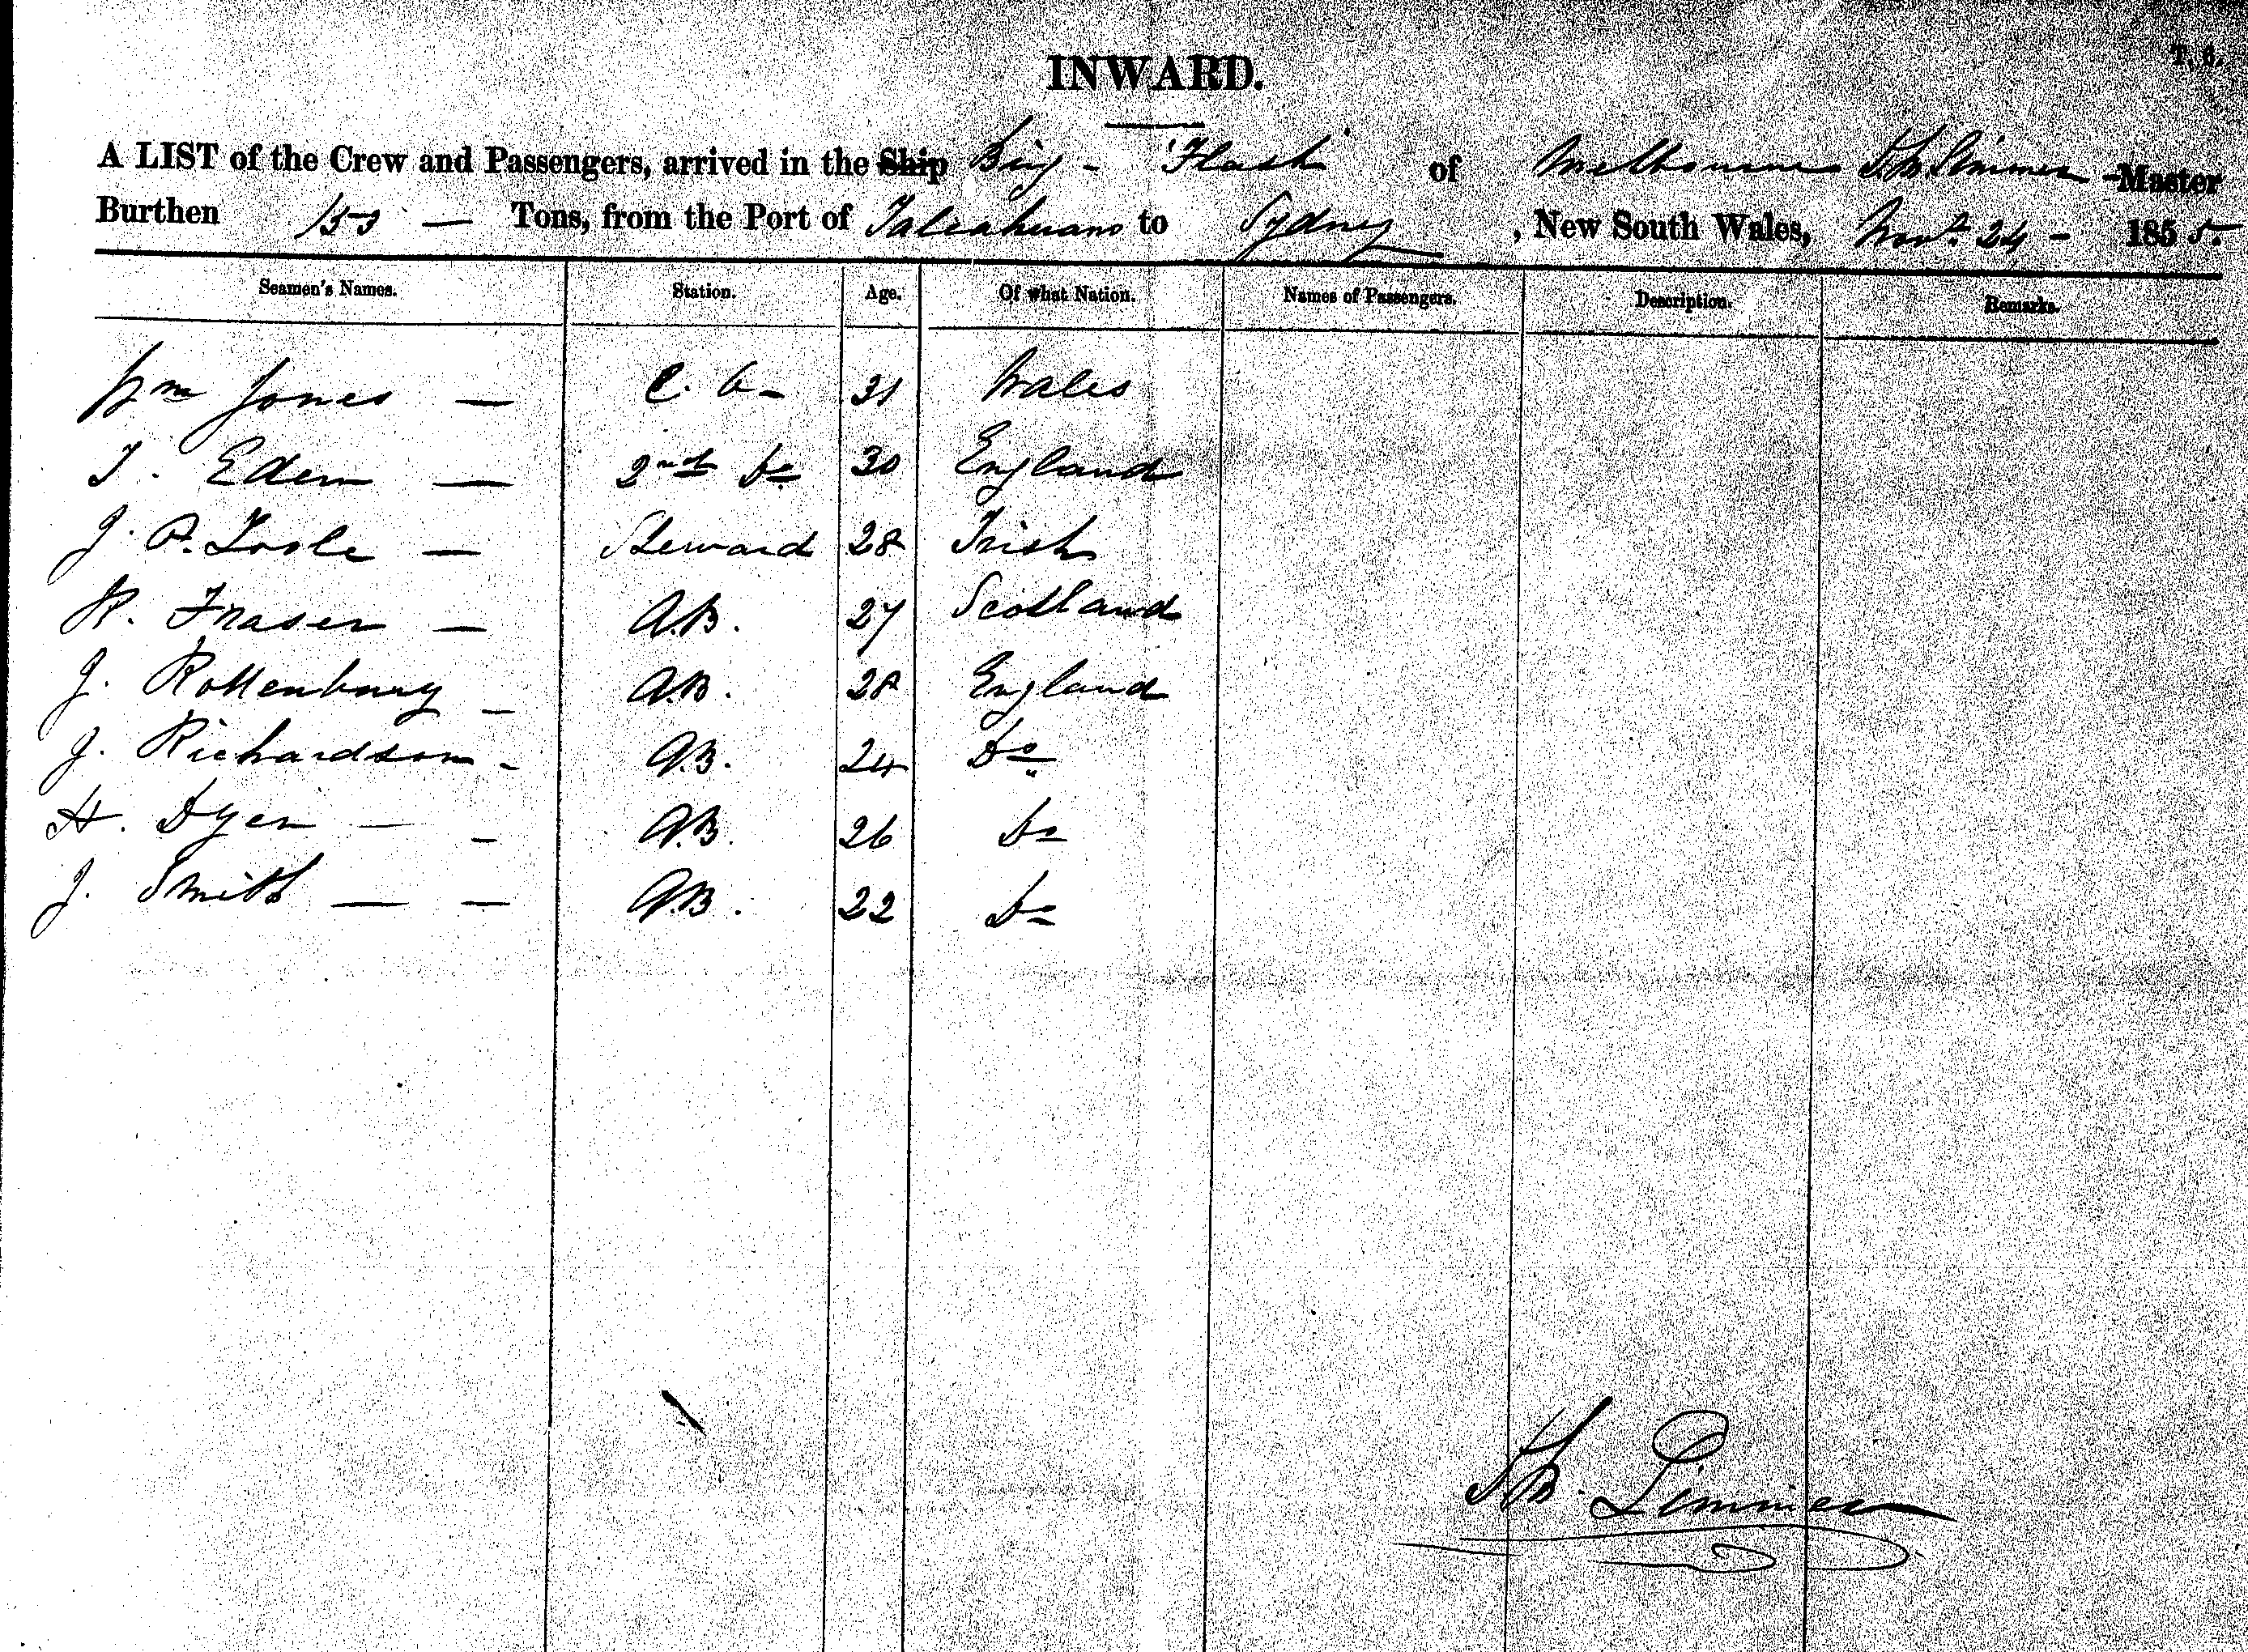 INWARD.
T. 6.
A LIST of the Crew and Passengers, arrived in the Ship Brig - Flash of Melbourne Master
Burthen 153 — Tons, from the Port of Talcahuano to Sydney, New South Wales, Novr. 24 - 1855.
Seamen's Names. Station. Age. Of what Nation. Names of Passengers. Description. Remarks.
Wm Jones — C. 31 Wales
T. Eden — 2nd Do 30 England
J. P. Toole — Steward 28 Irish
R. Fraser — A.B. 27 Scotland
J. Rottenbury — A.B. 28 England
J. Richardson - A.B. 24 Do
H. Dyer — - A.B. 26 Do
J. Smith — — A.B. 22 Do